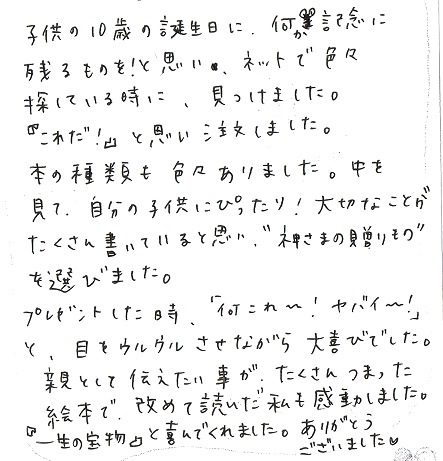 子供の10歳の誕生日に、何か記念に
残るものを！と思い、ネットで色々
探している時に、見つけました。
『これだ！』と思い注文しました。
本の種類も色々ありました。中を
見て、自分の子供にぴったり！大切なことが
たくさん書いていると思い、"神さまの贈りもの"
を選びました。
プレゼントした時、「何これ〜！ヤバイ〜！」
と、目をウルウルさせながら大喜びでした。
親として伝えたい事が、たくさんつまった
絵本で、改めて読いだ私も感動しました。
『一生の宝物』と喜んでくれました。ありがとう
ございました♡